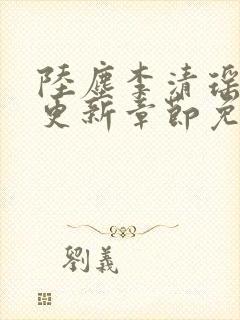 陸塵李清瑤
更新章節免
劉義